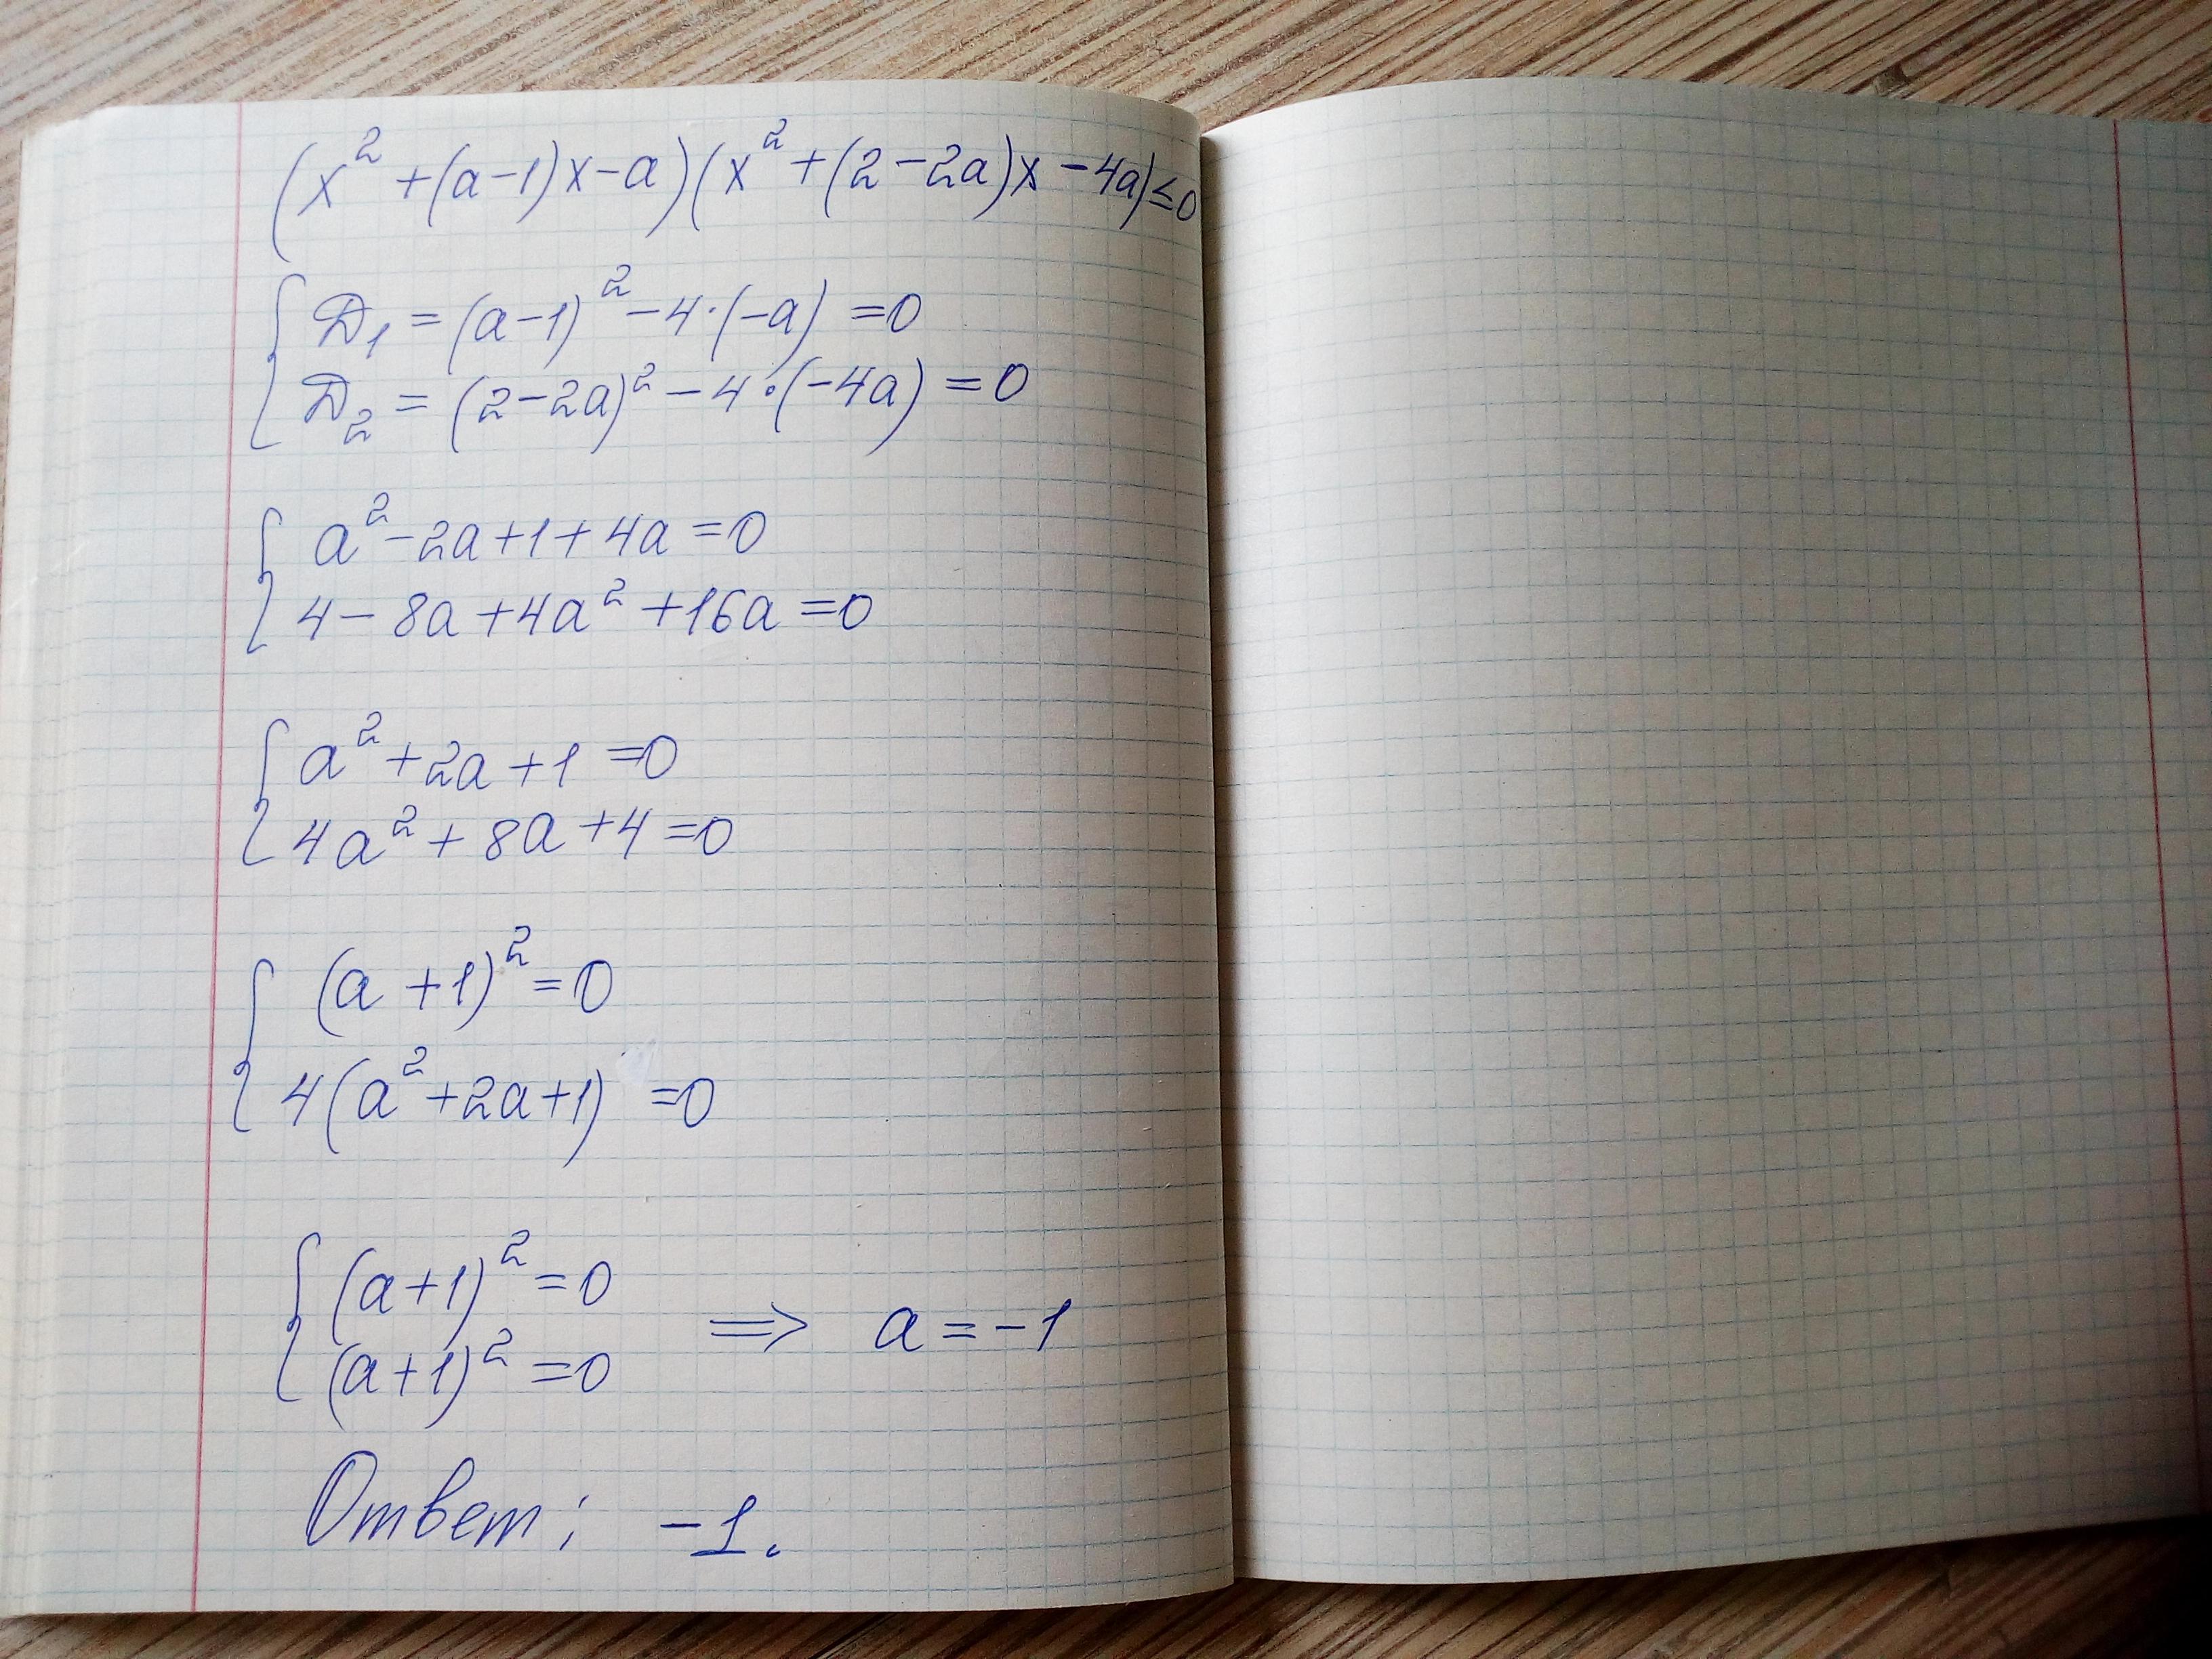 (x² + (a-1)x-a)(x² + (2-2a)x - 4a) ≤ 0
{ Д₁ = (a-1)² - 4·(-a) = 0
Д₂ = (2-2a)² - 4·(-4a) = 0
{ a² - 2a + 1 + 4a = 0
4 - 8a + 4a² + 16a = 0
{ a² + 2a + 1 = 0
4a² + 8a + 4 = 0
{ (a + 1)² = 0
4(a² + 2a + 1) = 0
{ (a+1)² = 0
(a+1)² = 0 ⟹ a = -1
Ответ: -1.